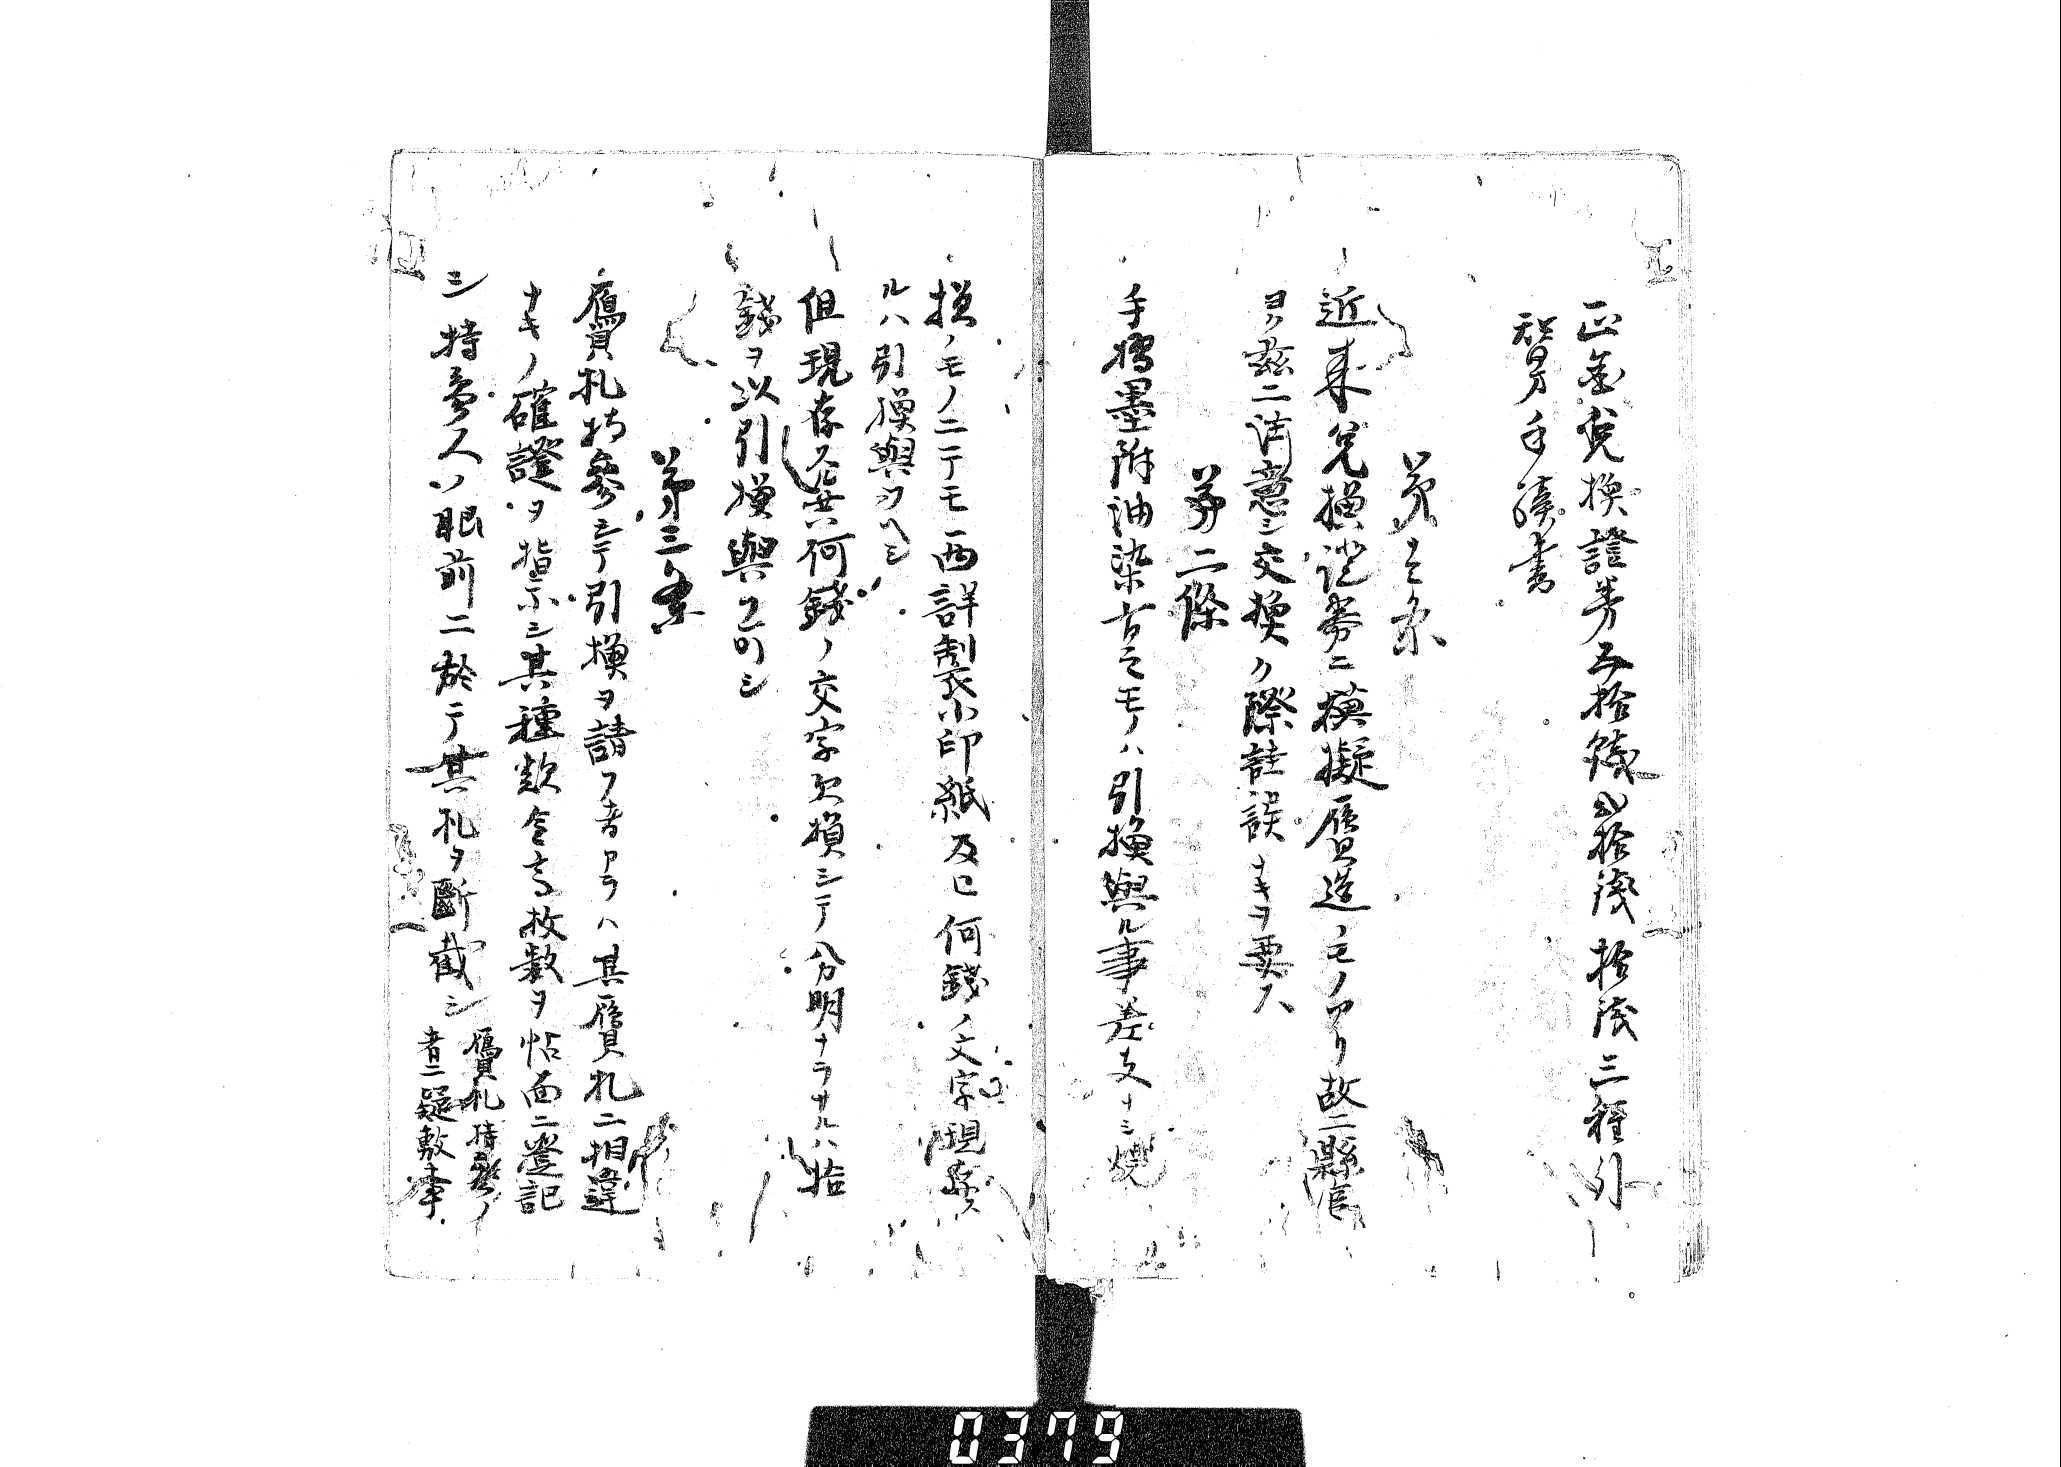 正金兌換證券五拾錢貳拾錢拾錢三種引
替方手續書
第一條
近来兌換證券ニ摸擬贋造ノモノアリ故ニ縣官
ヨク茲ニ注意シ交換ノ際詿誤ナキヲ要ス
第二條
手摺墨附油染古キモノハ引換與ル事差支ナシ燒
損ノモノニテモ両詳製小印紙及ヒ何錢ノ文字現存ス
ルハ引換與フヘシ
但現存スニ共何錢ノ文字欠損シテ分明ナラサルハ拾
錢ヲ以引換與フ可シ
第三條
贋貨札持参シテ引換ヲ請フ者アラハ其贋貨札ニ相違
ナキノ確證ヲ指示シ其種類金高枚数ヲ帖面ニ登記
シ持参人ハ眼前ニ於テ其札ヲ断截シ贋貨札持参ノ
者ニ疑敷事
0379